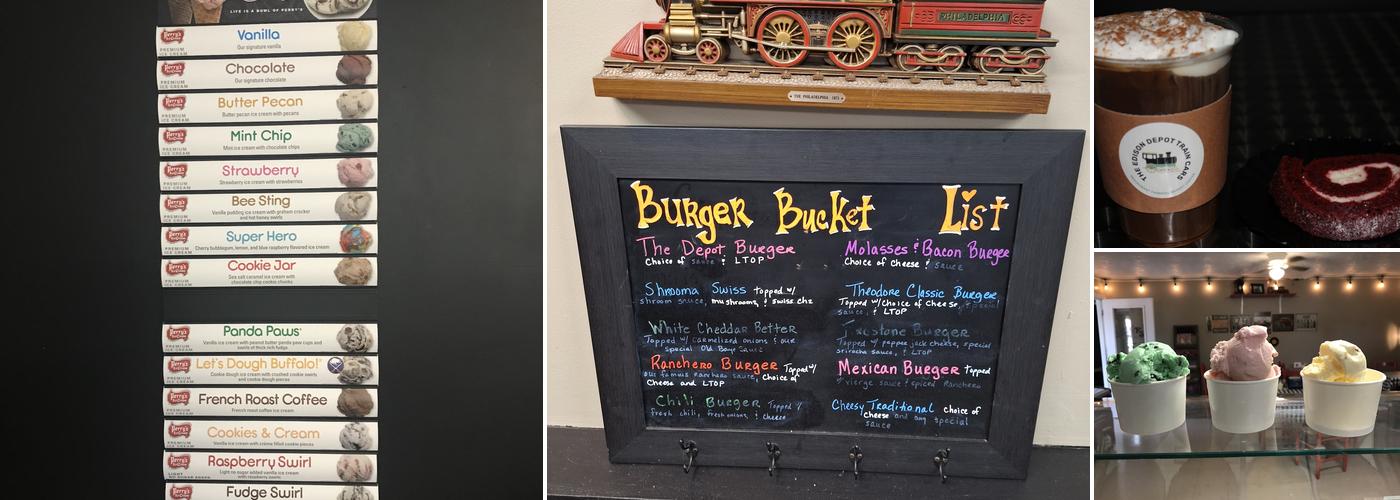 LIFE IS A BOWL OF PERRY'S
Perry's
ICE CREAM
PREMIUM
ICE CREAM
Vanilla
Our signature vanilla
Perry's
ICE CREAM
PREMIUM
ICE CREAM
Chocolate
Our signature chocolate
Perry's
ICE CREAM
PREMIUM
ICE CREAM
Butter Pecan
Butter pecan ice cream with pecans
Perry's
ICE CREAM
PREMIUM
ICE CREAM
Mint Chip
Mint ice cream with chocolate chips
Perry's
ICE CREAM
PREMIUM
ICE CREAM
Strawberry
Strawberry ice cream with strawberries
Perry's
ICE CREAM
PREMIUM
ICE CREAM
Bee Sting
Vanilla pudding ice cream with graham cracker
and hot honey swirls
Perry's
ICE CREAM
PREMIUM
ICE CREAM
Super Hero
Cherry bubblegum, lemon, and blue raspberry flavored ice cream
Perry's
ICE CREAM
PREMIUM
ICE CREAM
Cookie Jar
Sea salt caramel ice cream with
chocolate chip cookie chunks
Perry's
ICE CREAM
PREMIUM
ICE CREAM
Panda Paws
Vanilla ice cream with peanut butter panda paw cups and
swirls of thick rich fudge.
Perry's
ICE CREAM
PREMIUM
ICE CREAM
Let's Dough Buffalo!
Cookie dough ice cream with crushed cookie swirls
and cookie dough pieces
Perry's
ICE CREAM
PREMIUM
ICE CREAM
French Roast Coffee
French roast coffee ice cream
Perry's
ICE CREAM
PREMIUM
ICE CREAM
Cookies & Cream
Vanilla ice cream with crème filled cookie pieces
Perry's
ICE CREAM
LIGHT
NO SUGAR ADDED
Raspberry Swirl
Light no sugar added vanilla ice cream
with raspberry swirls
Perry's
Fudge Swirl
PHILADELPHIA
THE PHILADELPHIA 1875
Burger Bucket List
The Depot Burger
Choice of sauce & LTOP
Shrooma Swiss topped w/
shroom sauce, mushrooms, & swiss chz
White Cheddar Better
Topped w/ carmelized onions & our
special Old Bay Sauce
Ranchero Burger Topped w/
our famous Ranchero sauce, choice of
Cheese and LTOP
Chili Burger Topped w/
fresh chili, fresh onions, & cheese
Molasses & Bacon Burger
Choice of Cheese & sauce
Theodore Classic Burger,
Topped w/choice of Cheese, special
sauce, & LTOP
Firestone Burger
Topped w/ pepper jack cheese, special
sriracha sauce, & LTOP
Mexican Burger topped
w/ vierge sauce & spiced Ranchero
Cheesy Traditional choice of
cheese and any special
sauce
THE EDISON DEPOT TRAIN CARS